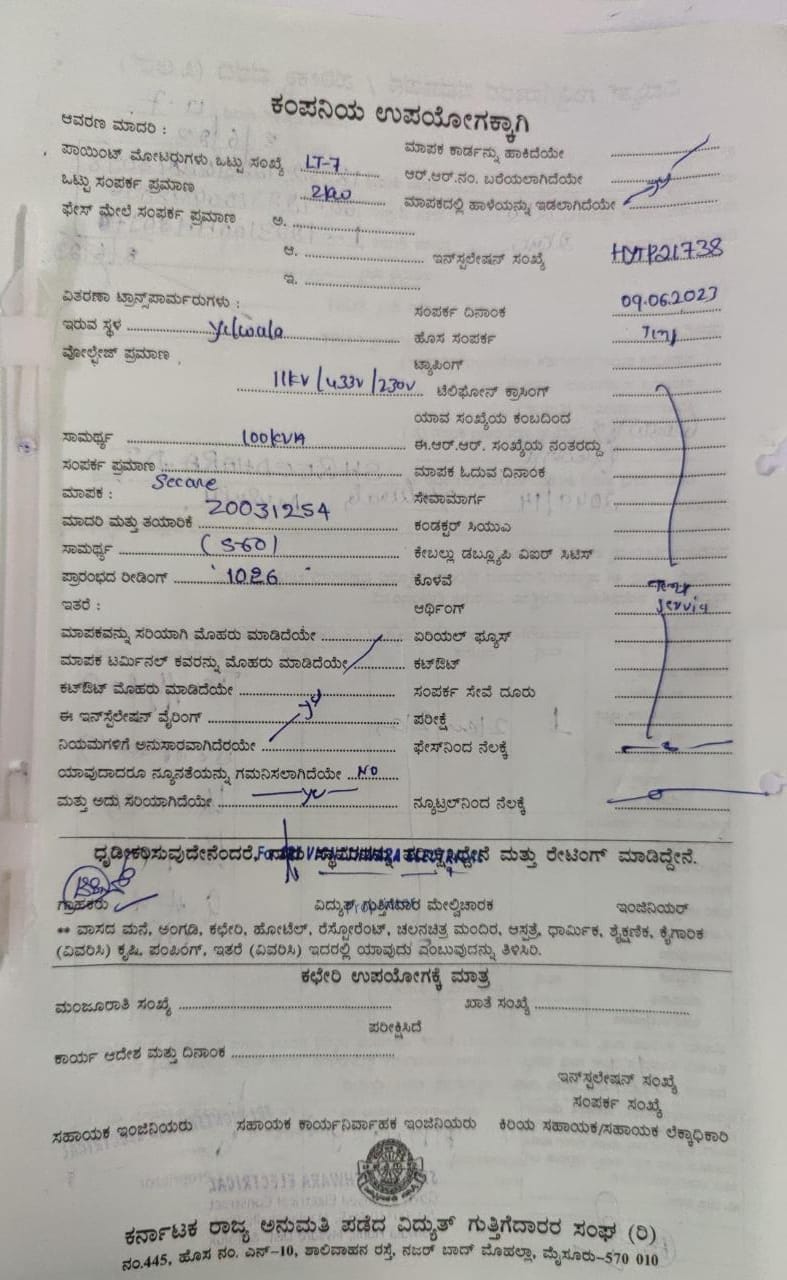 ಕಂಪನಿಯ ಉಪಯೋಗಕ್ಕಾಗಿ
ಆವರಣ ಮಾದರಿ :
ಪಾಯಿಂಟ್ ಮೋಟರುಗಳು ಒಟ್ಟು ಸಂಖ್ಯೆ LT-7 ಮಾಪಕ ಕಾರ್ಡನ್ನು ಹಾಕಿದೆಯೇ
ಒಟ್ಟು ಸಂಪರ್ಕ ಪ್ರಮಾಣ ಆರ್.ಆರ್.ನಂ. ಬರೆಯಲಾಗಿದೆಯೇ
ಫೇಸ್ ಮೇಲೆ ಸಂಪರ್ಕ ಪ್ರಮಾಣ ಅ. ಮಾಪಕದಲ್ಲಿ ಹಾಳೆಯನ್ನು ಇಡಲಾಗಿದೆಯೇ
ಆ. ಇನ್‌ಸ್ಪಲೇಷನ್ ಸಂಖ್ಯೆ
ಇ.
ವಿತರಣಾ ಟ್ರಾನ್ಸ್‌ಪಾರ್ಮರುಗಳು : ಸಂಪರ್ಕ ದಿನಾಂಕ 09.06.2023
ಇರುವ ಸ್ಥಳ Yelwala ಹೊಸ ಸಂಪರ್ಕ
ವೋಲ್ಟೇಜ್ ಪ್ರಮಾಣ ಟ್ಯಾಪಿಂಗ್
11KV/433V/230V ಟೆಲಿಫೋನ್ ಕ್ರಾಸಿಂಗ್
ಯಾವ ಸಂಖ್ಯೆಯ ಕಂಬದಿಂದ
ಸಾಮರ್ಥ್ಯ 100KVA ಈ.ಆರ್.ಆರ್. ಸಂಖ್ಯೆಯ ನಂತರದ್ದು
ಸಂಪರ್ಕ ಪ್ರಮಾಣ ಮಾಪಕ ಓದುವ ದಿನಾಂಕ
ಮಾಪಕ : Secure ಸೇವಾಮಾರ್ಗ
ಮಾದರಿ ಮತ್ತು ತಯಾರಿಕೆ 20031254 ಕಂಡಕ್ಟರ್ ಸಿಯುಎ
ಸಾಮರ್ಥ್ಯ (5-60) ಕೇಬಲ್ಲು ಡಬ್ಲ್ಯೂಪಿ ವಿಐರ್ ಸಿಟಿಸ್
ಪ್ರಾರಂಭದ ರೀಡಿಂಗ್ 1026 ಕೊಳವೆ
ಇತರೆ : ಆರ್ಥಿಂಗ್
ಮಾಪಕವನ್ನು ಸರಿಯಾಗಿ ಮೊಹರು ಮಾಡಿದೆಯೇ ಏರಿಯಲ್ ಫ್ಯೂಸ್
ಮಾಪಕ ಟರ್ಮಿನಲ್ ಕವರನ್ನು ಮೊಹರು ಮಾಡಿದೆಯೇ ಕಟ್‌ಔಟ್
ಕಟ್‌ಔಟ್ ಮೊಹರು ಮಾಡಿದೆಯೇ ಸಂಪರ್ಕ ಸೇವೆ ದೂರು
ಈ ಇನ್‌ಸ್ಪೆಲೇಷನ್ ವೈರಿಂಗ್ ಪರೀಕ್ಷೆ
ನಿಯಮಗಳಿಗೆ ಅನುಸಾರವಾಗಿದೆಯೇ ಫೇಸ್‌ನಿಂದ ನೆಲಕ್ಕೆ
ಯಾವುದಾದರೂ ನ್ಯೂನತೆಯನ್ನು ಗಮನಿಸಲಾಗಿದೆಯೇ NO
ಮತ್ತು ಅದು ಸರಿಯಾಗಿದೆಯೇ ನ್ಯೂಟ್ರಲ್‌ನಿಂದ ನೆಲಕ್ಕೆ
ಧೃಡೀಕರಿಸುವುದೇನೆಂದರೆ, ಮತ್ತು ರೇಟಿಂಗ್ ಮಾಡಿದ್ದೇನೆ.
ಗ್ರಾಹಕರು ವಿದ್ಯುತ್ ಗುತ್ತಿಗೆದಾರ ಮೇಲ್ವಿಚಾರಕ ಇಂಜಿನಿಯರ್
** ವಾಸದ ಮನೆ, ಅಂಗಡಿ, ಕಛೇರಿ, ಹೋಟೆಲ್, ರೆಸ್ಟೋರೆಂಟ್, ಚಲನಚಿತ್ರ ಮಂದಿರ, ಆಸ್ಪತ್ರೆ, ಧಾರ್ಮಿಕ, ಶೈಕ್ಷಣಿಕ, ಕೈಗಾರಿಕೆ
(ವಿವರಿಸಿ) ಕೃಷಿ, ಪಂಪಿಂಗ್, ಇತರೆ (ವಿವರಿಸಿ) ಇದರಲ್ಲಿ ಯಾವುದು ಎಂಬುವುದನ್ನು ತಿಳಿಸಿರಿ.
ಕಛೇರಿ ಉಪಯೋಗಕ್ಕೆ ಮಾತ್ರ
ಮಂಜೂರಾತಿ ಸಂಖ್ಯೆ ಖಾತೆ ಸಂಖ್ಯೆ
ಪರೀಕ್ಷಿಸಿದೆ
ಕಾರ್ಯ ಆದೇಶ ಮತ್ತು ದಿನಾಂಕ
ಇನ್‌ಸ್ಪಲೇಷನ್ ಸಂಖ್ಯೆ
ಸಂಪರ್ಕ ಸಂಖ್ಯೆ
ಸಹಾಯಕ ಇಂಜಿನಿಯರು ಸಹಾಯಕ ಕಾರ್ಯನಿರ್ವಾಹಕ ಇಂಜಿನಿಯರು ಕಿರಿಯ ಸಹಾಯಕ/ಸಹಾಯಕ ಲೆಕ್ಕಾಧಿಕಾರಿ
ಕರ್ನಾಟಕ ರಾಜ್ಯ ಅನುಮತಿ ಪಡೆದ ವಿದ್ಯುತ್ ಗುತ್ತಿಗೆದಾರರ ಸಂಘ (ರಿ)
ನಂ.445, ಹೊಸ ನಂ. ಎನ್-10, ಶಾಲಿವಾಹನ ರಸ್ತೆ, ನಜರ್ ಬಾದ್ ಮೊಹಲ್ಲಾ, ಮೈಸೂರು-570 010